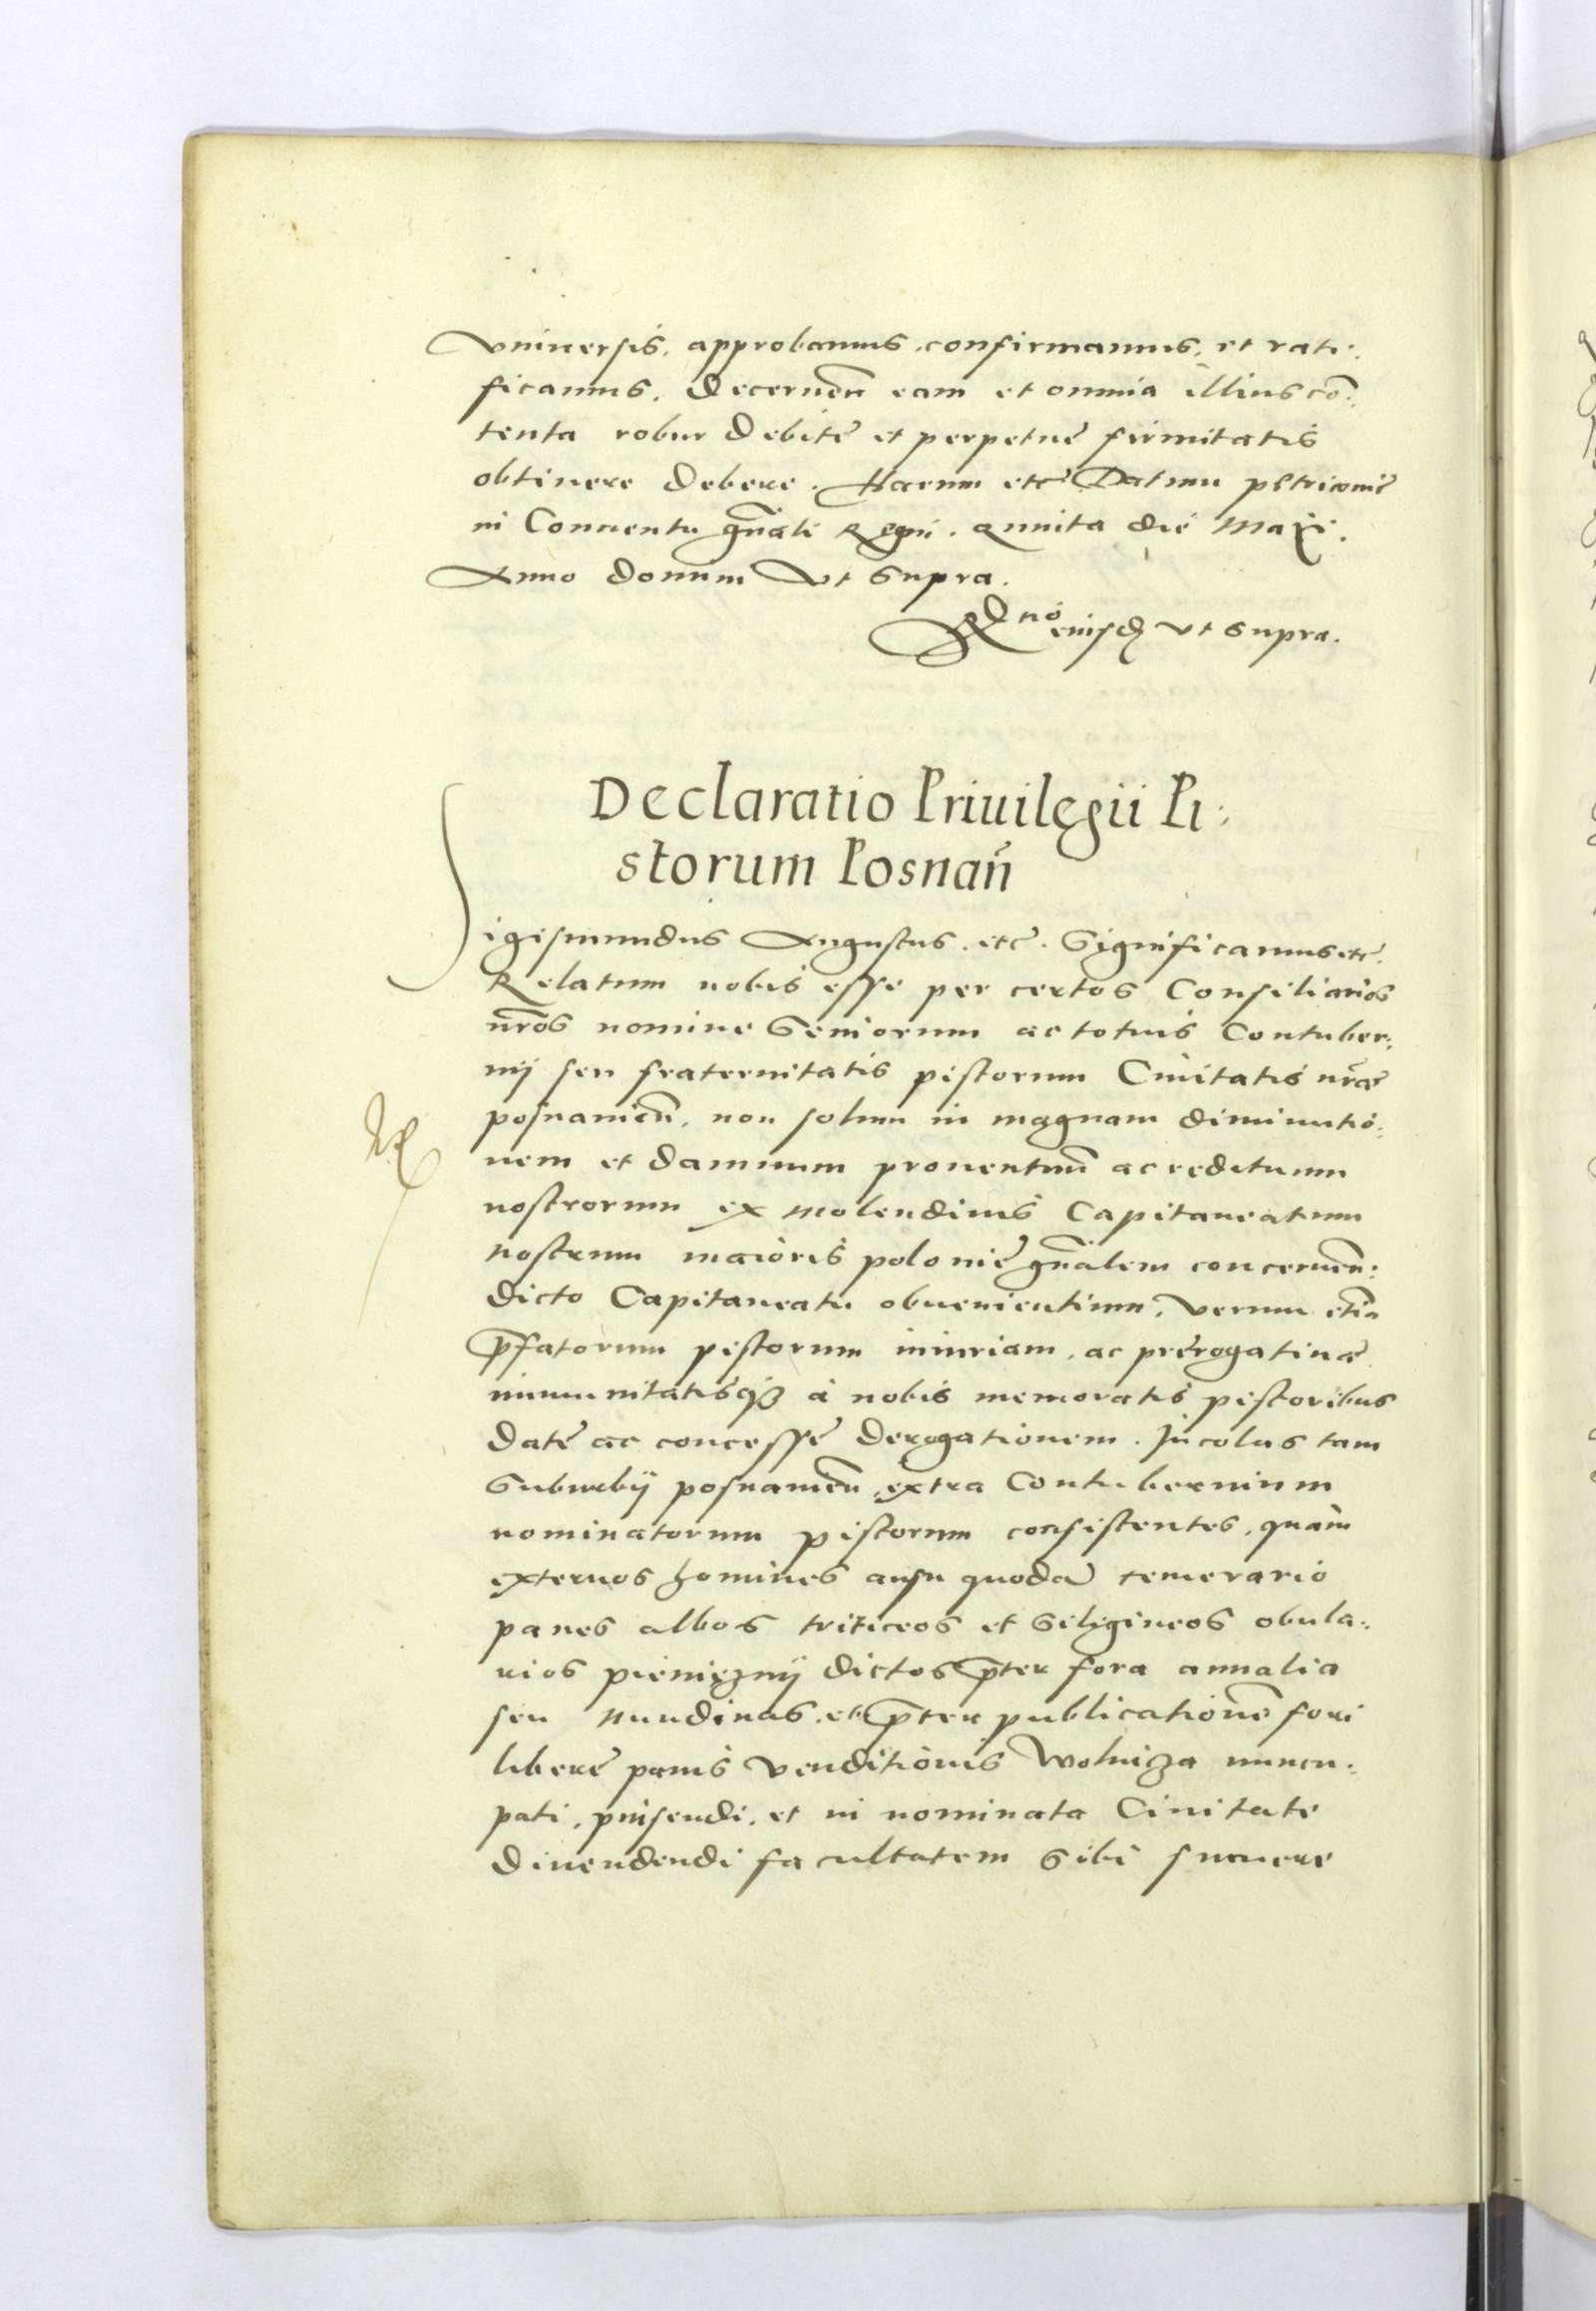 Vniuersis, approbamus, confirmamus, et rati:
ficamus, Decernen̄ eam et omnia illius cō:
tenta robur Debitę et perpetuę firmitatis
obtinere Debere. Harum etc̄ Datum pętricouię
in Conuentu gn̄ali Regni. Quinta die Maij.
Anno domini Vt Supra.
R̄tio eiusdē vt supra.
Declaratio Priuilegii Pi:
storum Posnan̄
Sigismundus Augustus. etc̄. Significamus etc̄.
Relatum nobis esse per certos Consiliarios
nr̄os nomine Seniorum ac totius Contuber:
nij seu fraternitatis pistorum Ciuitatis nr̄ae
posnanien̄, non solum in magnam diminutio:
nem et damnum prouentuum̄ ac redituum
nostrorum ex Molendinis Capitaneatum
Nostrum maioris polonię gn̄alem concernen̄:
dicto Capitaneatu obuenientium, Verum etiā
p̄fatorum pistorum iniuriam, ac prerogatiuae
immunitatisq3 à nobis memoratis pistoribus
datę ac concessę Derogationem. Incolas tam
Suburbij posnanien̄, extra Contubernium
nominatorum pistorum consistentes, quàm
externos homines ausu quodā temerario
panes albos triticeos et Siligineos obula:
rios pieniężnij dictos p̄ter fora annalia
seu Nundinas, et p̄ter publicationē fori
liberę panis Venditionis Wolnicza nuncu:
pati, pinsendi, et in nominata Ciuitate
diuendendi facultatem Sibi sumere